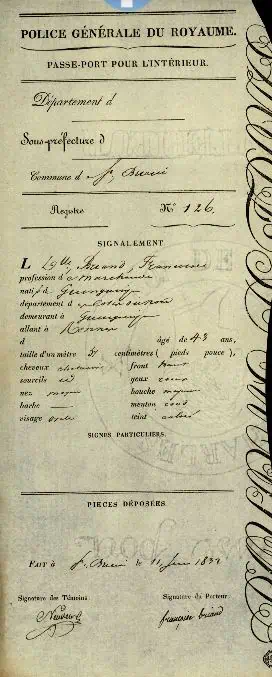 POLICE GÉNÉRALE DU ROYAUME.
PASSE-PORT POUR L'INTÉRIEUR.
Département d
Sous-préfecture d
Commune d St Brieuc
Registre N° 126
SIGNALEMENT
L Briand, Françoise
profession de marchande
natif de Guingamp
departement d
demeurant à Guingamp
allant à Rennes
d âgé de 48 ans,
taille d'un mètre 51 centimètres ( pieds pouce ),
cheveux front haut
sourcils id yeux roux
nez moyen bouche moyenne
barbe — menton rond
visage ovale teint coloré
SIGNES PARTICULIERS.
PIECES DÉPOSÉES.
FAIT à St Brieuc le 11 1832
Signature des Témoins Signature du Porteur.
françoise briand